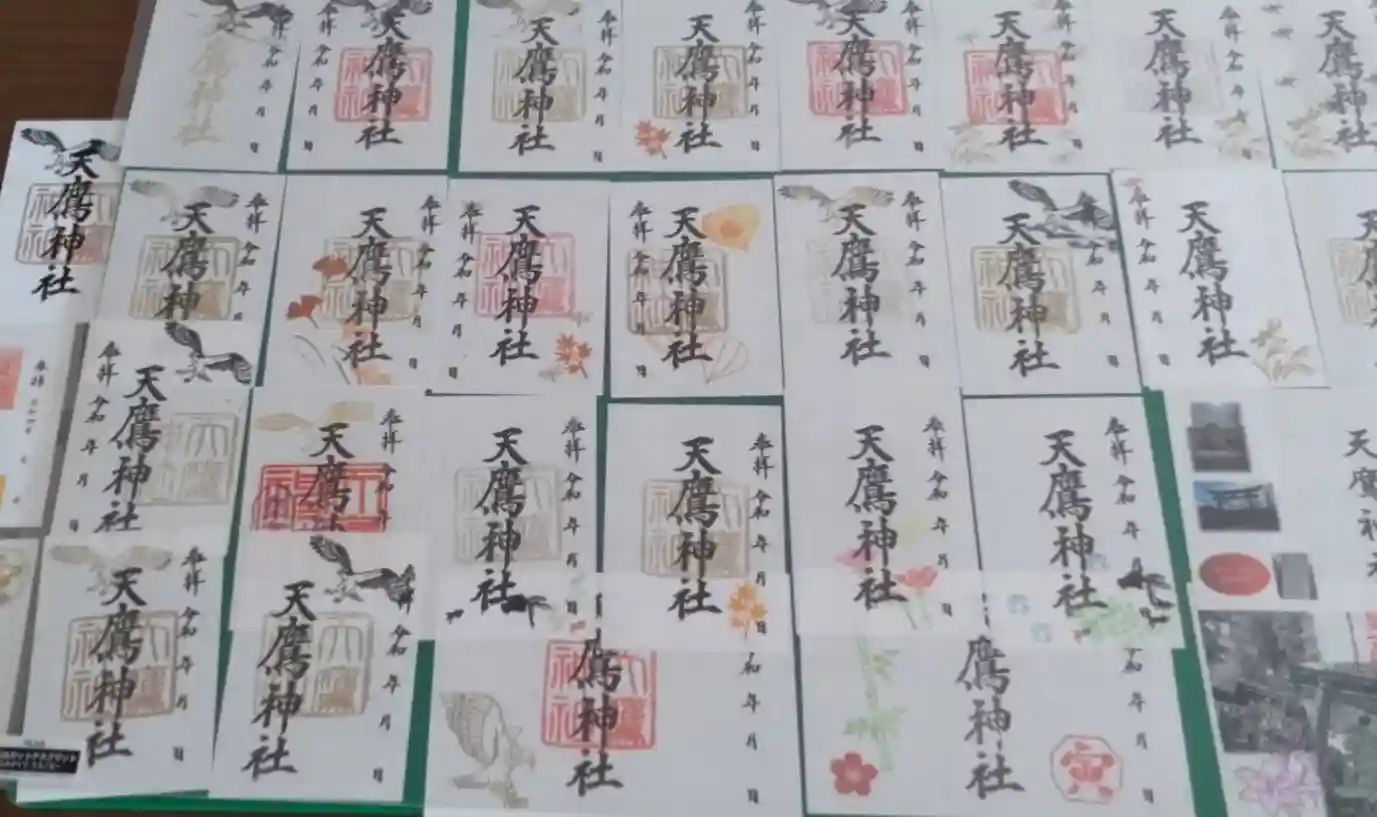 天鷹神社
奉拝 令和 年 月 日
天鷹神社
奉拝 令和 年 月 日
天鷹神社
奉拝 令和 年 月 日
天鷹神社
奉拝 令和 年 月 日
天鷹神社
奉拝 令和 年 月 日
天鷹神社
奉拝 令和 年 月 日
天鷹神社
奉拝 令和 年 月 日
天鷹神社
天鷹神社
天鷹神
奉拝 令和 年 月 日
天鷹神社
奉拝 令和 年 月 日
天鷹神社
奉拝 令和 年 月 日
天鷹神社
奉拝 令和 年 月 日
天鷹神社
奉拝 令和 年 月 日
天鷹神社
奉拝 令和 年 月 日
天鷹神社
奉拝 令和 年 月 日
奉拝
天鷹神社
奉拝 令和 年 月 日
天鷹
奉拝 令和 年
天鷹神社
奉拝 令和 年 月
天鷹神社
奉拝 令和 年 月 日
天鷹神社
奉拝 令和 年 月 日
天鷹神社
奉拝 令和 年 月
天鷹神
天鷹神社
奉拝 令和 年 月 日
天鷹神社
令和 年 月 日
鷹神社
和 年 月 日
鷹神社
和 年 月 日
寅